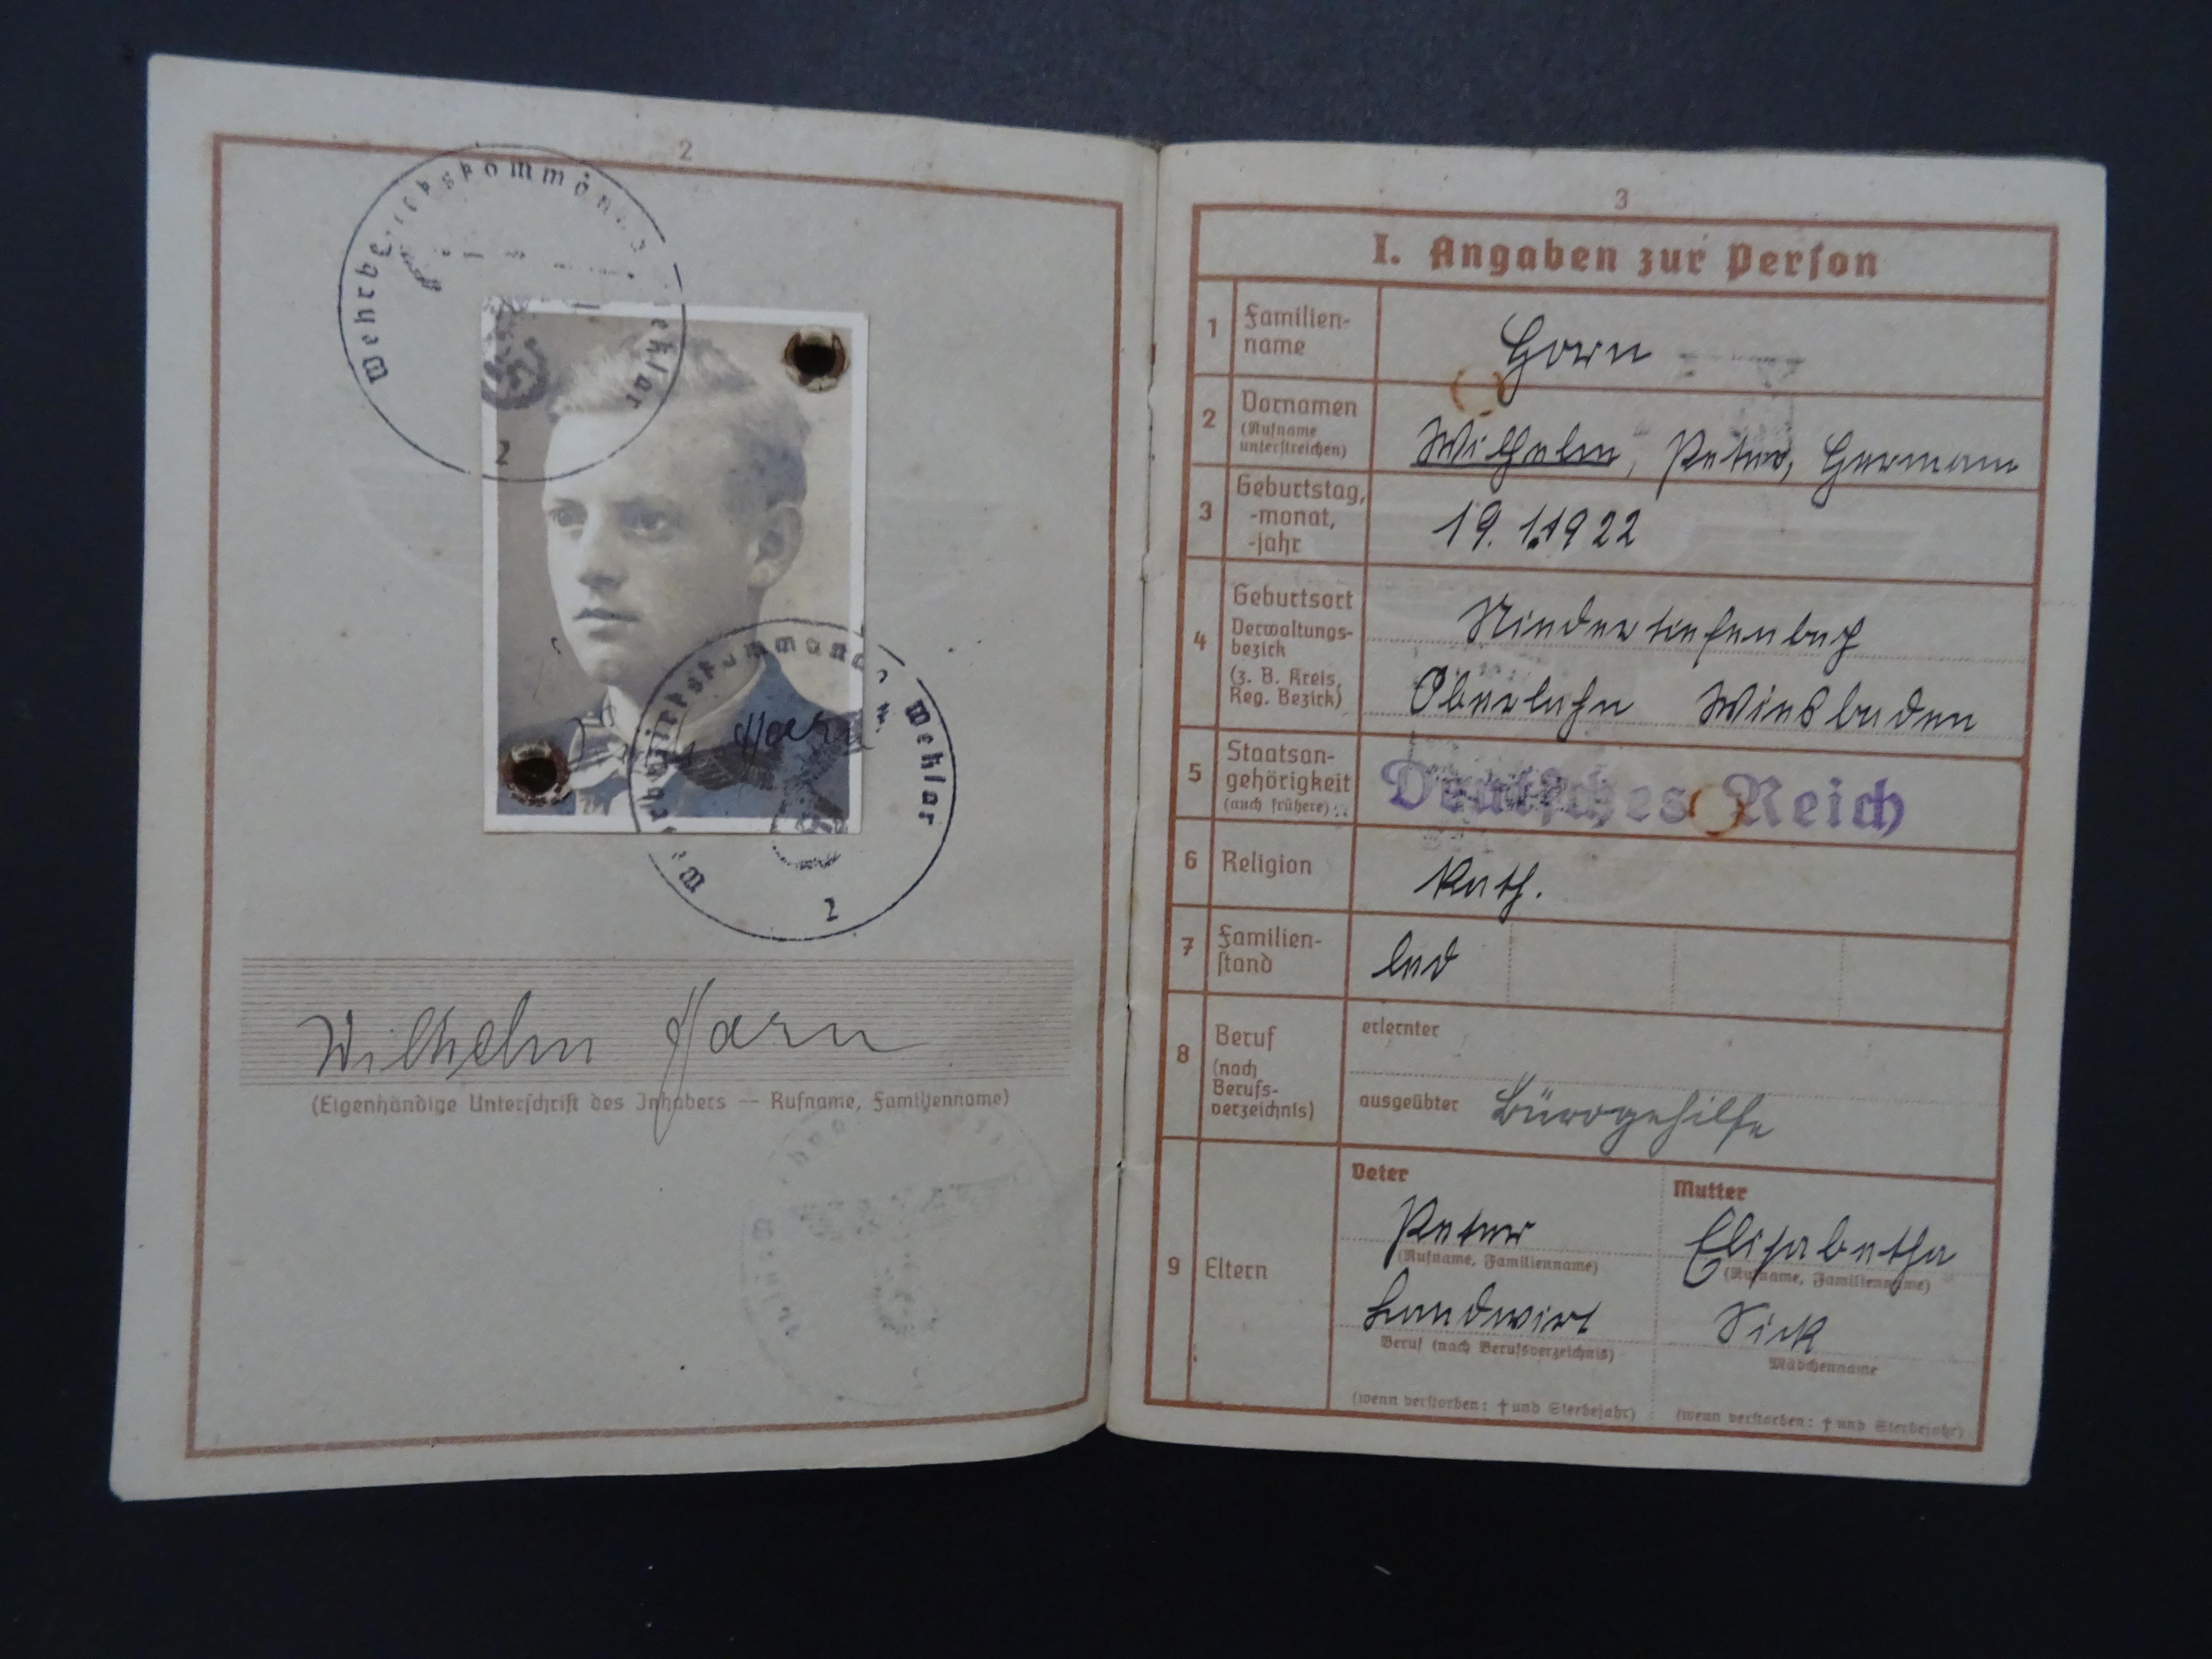 2
Wehrbezirkskommando Wetzlar
2
Wehrbezirkskommando Wetzlar
2
Wilhelm Horn
(Eigenhändige Unterschrift des Inhabers — Rufname, Familienname)
3
I. Angaben zur Person
1 Familien-
name
Horn
2 Vornamen
(Rufname
unterstreichen)
Wilhelm, Peter, Hermann
3 Geburtstag,
-monat,
-jahr
19.1.1922
4 Geburtsort
Verwaltungs-
bezirk
(z. B. Kreis,
Reg. Bezirk)
Niedertiefenbach
Oberlahn Wiesbaden
5 Staatsan-
gehörigkeit
(auch frühere)
Deutsches Reich
6 Religion
Kath.
7 Familien-
stand
led
8 Beruf
(nach
Berufs-
verzeichnis)
erlernter
ausgeübter Bürogehilfe
9 Eltern
Vater
Peter
(Rufname, Familienname)
Landwirt
Beruf (nach Berufsverzeichnis)
(wenn verstorben: † und Sterbejahr)
Mutter
Elisabetha
(Rufname, Familienname)
Sick
Mädchenname
(wenn verstorben: † und Sterbejahr)